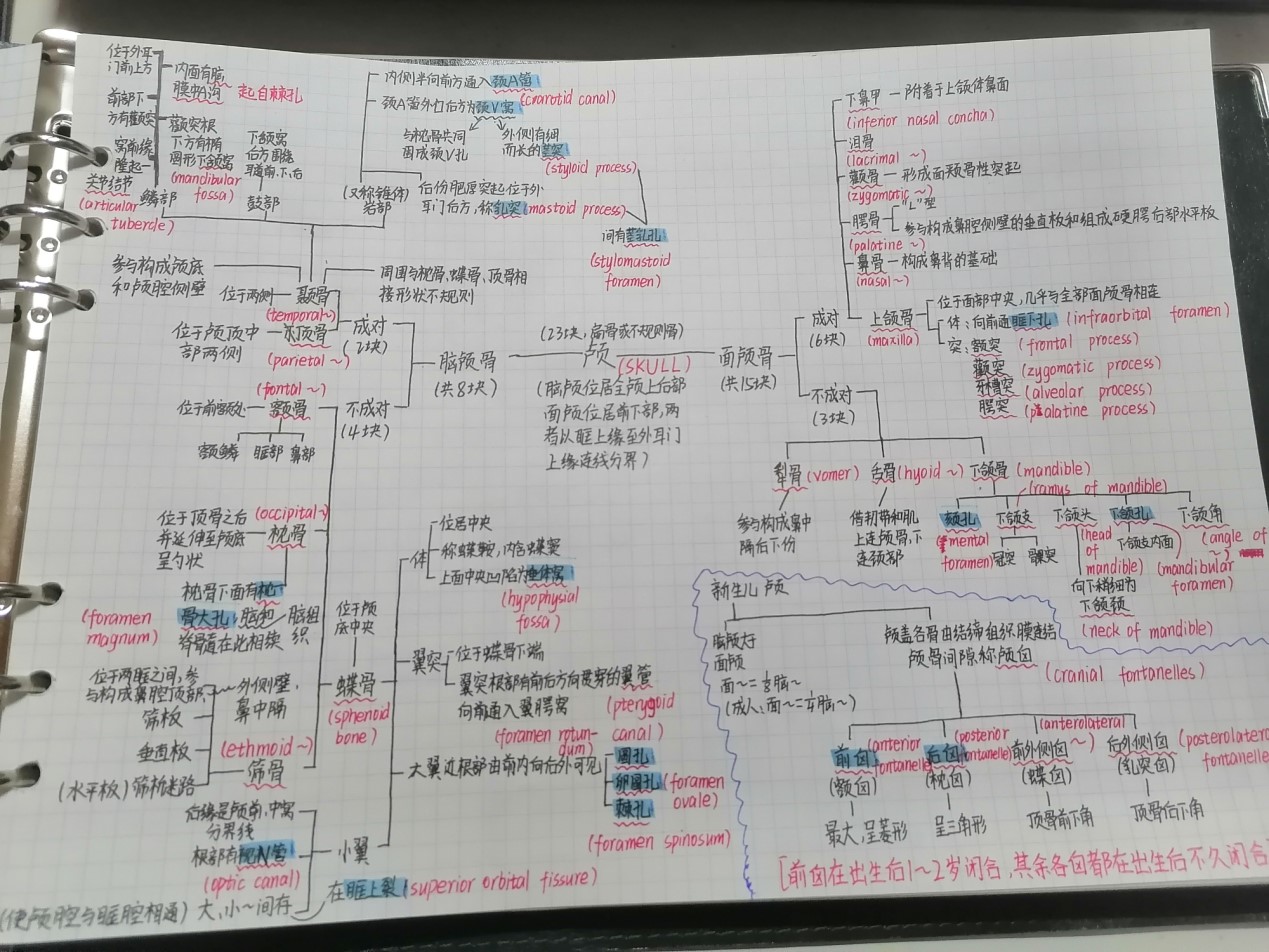 位于外耳
门前上方
内面有脑
膜中A沟 起自棘孔
前部下
方有颧突
颧突根
下方有椭
圆形下颌窝
(mandibular
fossa)
窝前缘
隆起
关节结节
(articular
tubercle)
鳞部
下颌窝
后方围绕
耳道前、下、后
鼓部
内侧半向前方通入颈A管
(crarotid canal)
颈A管外口后方为颈V窝
与枕骨共同
围成颈V孔
外侧有细
而长的茎突
(styloid process)
(又称锥体)
岩部
后份肥厚突起位于外
耳门后方,称乳突(mastoid process)
间有茎乳孔
(stylomastoid
foramen)
参与构成颅底
和颅腔侧壁
位于两侧
颞骨
(temporal~)
周围与枕骨、蝶骨、顶骨相
接形状不规则
位于颅顶中
部两侧
顶骨
(parietal ~)
成对
(2块)
(fontal~)
位于前额处
额骨
额鳞 眶部 鼻部
不成对
(4块)
脑颅骨
(共8块)
(23块,扁骨或不规则骨)
颅
(SKULL)
(脑颅位居全颅上后部
面颅位居前下部,两
者以眶上缘至外耳门
上缘连线分界)
面颅骨
(共15块)
成对
(6块)
不成对
(3块)
下鼻甲 — 附着于上颌体鼻面
(inferior nasal concha)
泪骨
(lacrimal ~)
颧骨 — 形成面颊骨性突起
(zygomatic ~)
腭骨
"L"型
参与构成鼻腔侧壁的垂直板和组成硬腭后部水平板
(palatine ~)
鼻骨 — 构成鼻背的基础
(nasal~)
上颌骨
(maxilla)
位于面部中央,几乎与全部面颅骨相连
体:向前通眶下孔 (infraorbital foramen)
突:额突 (frontal process)
颧突 (zygomatic process)
牙槽突 (alveolar process)
腭突 (palatine process)
犁骨(vomer)
参与构成鼻中
隔后下份
舌骨(hyoid ~)
借韧带和肌
上连颅骨,下
连颈部
下颌骨 (mandible)
(ramus of mandible)
颏孔
(mental
foramen)
下颌支
冠突 髁突
下颌头
(head
of
mandible)
向下稍细为
下颌颈
(neck of mandible)
下颌孔
下颌支内面
(mandibular
foramen)
下颌角
(angle of
~)
位于顶骨之后
并延伸至颅底
呈勺状
(occipital~)
枕骨
枕骨下面有枕
骨大孔,脑和
脊骨直在此相续
脑组
织
(foramen
magnum)
位于两眶之间,参
与构成鼻腔顶部
外侧壁,
鼻中隔
筛板
垂直板
(水平板) 筛骨迷路
(ethmoid ~)
筛骨
位于颅
底中央
蝶骨
(sphenoid
bone)
体
位居中央
称蝶鞍,内含蝶窦
上面中央凹陷为垂体窝
(hypophysial
fossa)
翼突
位于蝶骨下端
翼突根部有前后方向贯穿的翼管
向前通入翼腭窝
(pterygoid
canal)
(foramen rotun-
dum)
大翼近根部由前内向后外可见
圆孔
卵圆孔 (foramen
ovale)
棘孔
(foramen spinosum)
小翼
后缘是颅前、中窝
分界线
根部有视N管
(optic canal)
(使颅腔与眶腔相通) 大、小~间存
在眶上裂(superior orbital fissure)
新生儿颅
脑颅大于
面颅
面~=⅛脑~
(成人:面~=¼脑~)
颅盖各骨由结缔组织膜连结
颅骨间隙称颅囟
(cranial fontanelles)
前囟
(anterior
fontanelle)
(额囟)
最大,呈菱形
后囟
(posterior
fontanelle)
(枕囟)
呈三角形
(anterolateral
~)
前外侧囟
(蝶囟)
顶骨前下角
后外侧囟
(posterolatera
fontanelle
(乳突囟)
顶骨后下角
[前囟在出生后1~2岁闭合,其余各囟都在出生后不久闭合